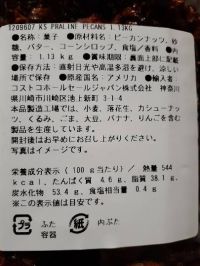 1209607 KS PRALINE PECANS 1.13KG
●名称：菓子 ●原材料名：ピーカンナッツ、砂
糖、バター、コーンシロップ、食塩／香料 ●内
容量：1.13 kg ●賞味期限：裏面上部に記載
●保存方法：直射日光や高温多湿を避け、涼しい
場所で保存 ●原産国名：アメリカ ●輸入者：
コストコホールセールジャパン株式会社 神奈川
県川崎市川崎区池上新町 3-1-4
本製造工場では、小麦、落花生、カシューナッ
ツ、くるみ、ごま、大豆、バナナ、りんごを含む
製品を生産しています。
開封後はお早めにお召し上がりください。
写真はイメージです。
栄養成分表示（100 g当たり）／熱量 544
kcal、たんぱく質 4.6 g、脂質 38.1 g、
炭水化物 53.4 g、食塩相当量 0.4 g
※この表示値は目安です。
プラ ふた 容器
紙 内ぶた